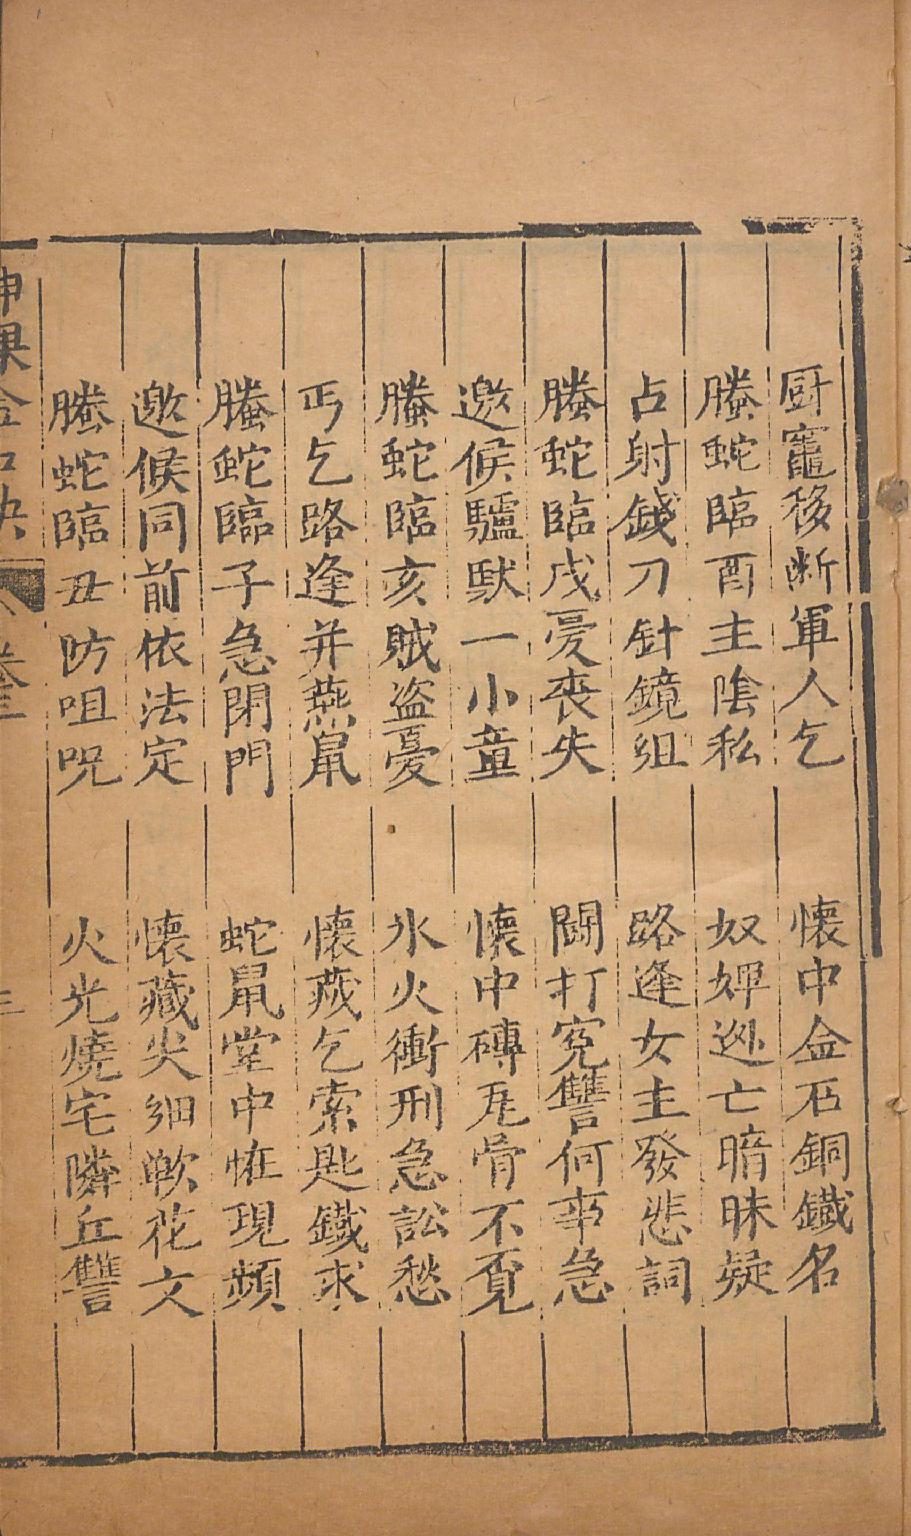 厨竈移断軍人乞　懷中金石銅鐵名
螣蛇臨酉主陰私　奴婢逃亡暗昧疑
占射錢刀針鏡細　路逢女主發悲詞
螣蛇臨戌憂丧失　鬪打冤讐何事急
邀候驢馱一小童　懷中磚瓦骨不覔
螣蛇臨亥賊盗憂　水火衝刑急訟愁
丐乞路逢并燕鼠　懷藏乞索匙鐵求
螣蛇臨子急閉門　蛇鼠堂中恠現頻
邀候同前依法定　懷藏尖細軟花文
螣蛇臨丑防咀呪　火光燒宅隣丘讐
神課金口訣　卷三　三